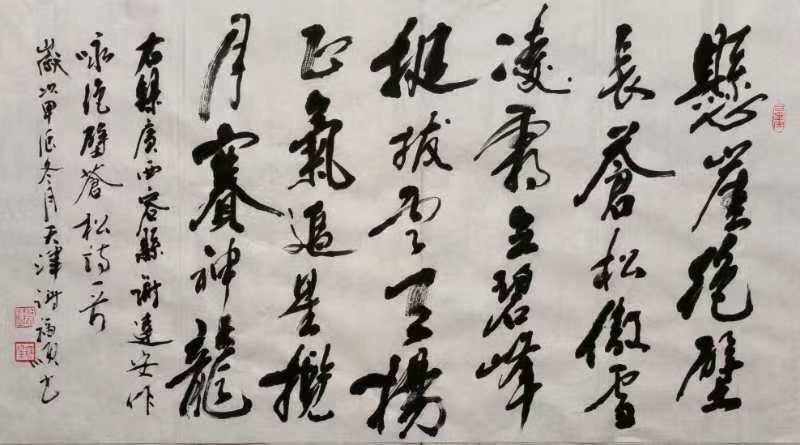 懸崖絕壁
長蒼松傲雪
凌霜立碧峰
挺拔雲天揚
正氣追星攬
月賽神龍
右錄廣西容縣謝達安作
咏絕壁蒼松詩一首
歲次甲辰冬月天津謝福順書